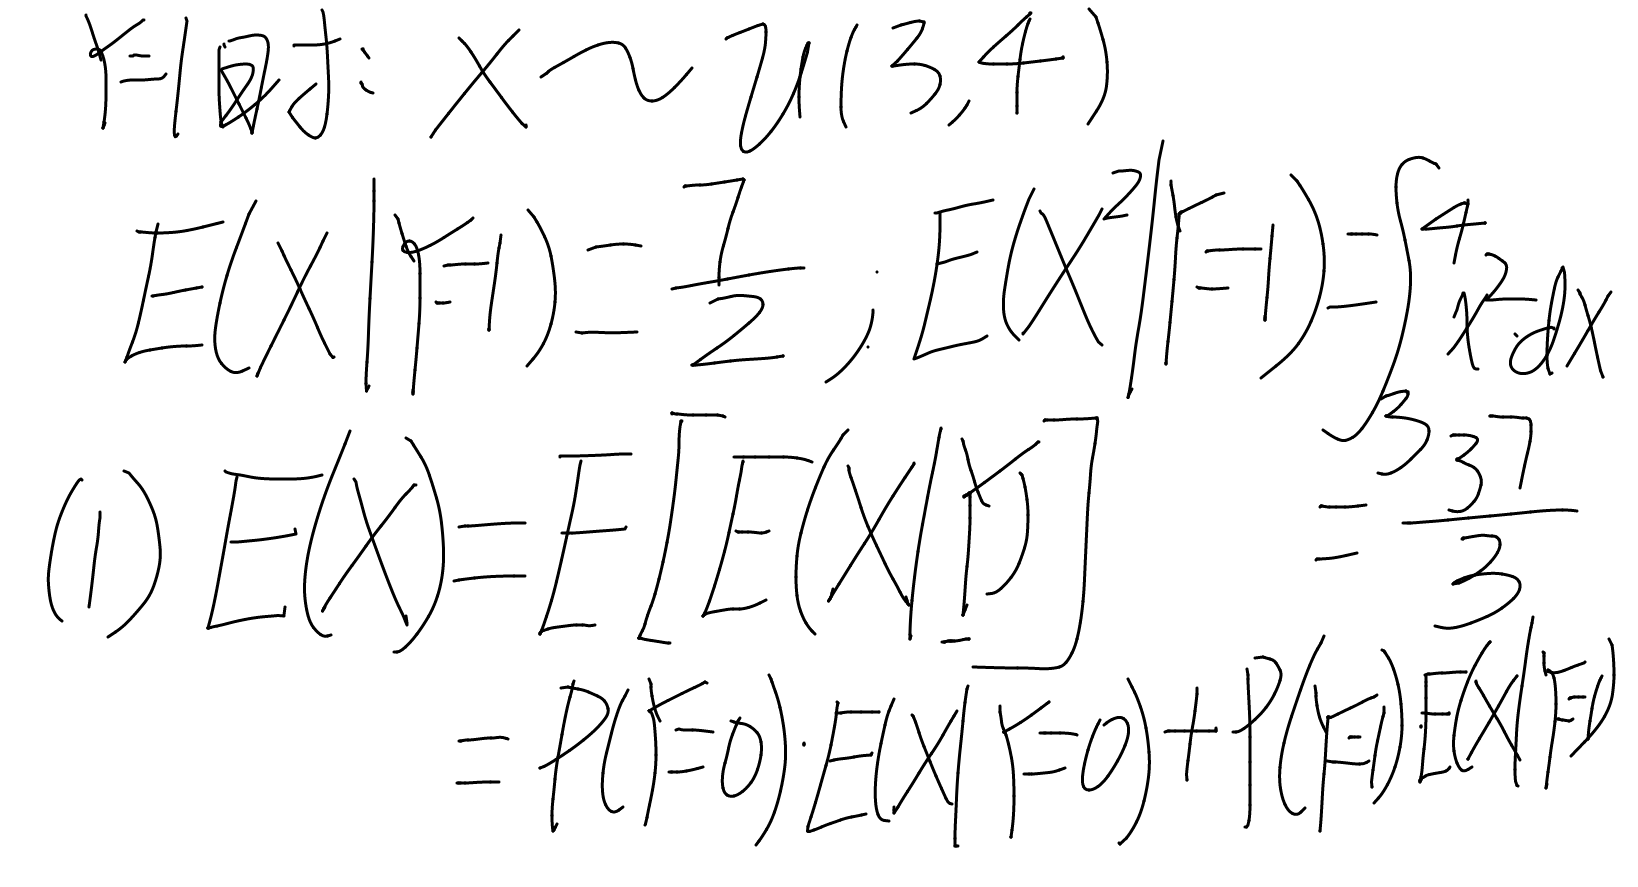 Y=1时: X~U(3,4)
E(X|Y=1)=7/2; E(X²|Y=1)=∫₃⁴x²dx
=37/3
(1) E(X)=E[E(X|Y)]
=P(Y=0)·E(X|Y=0)+P(Y=1)·E(X|Y=1)